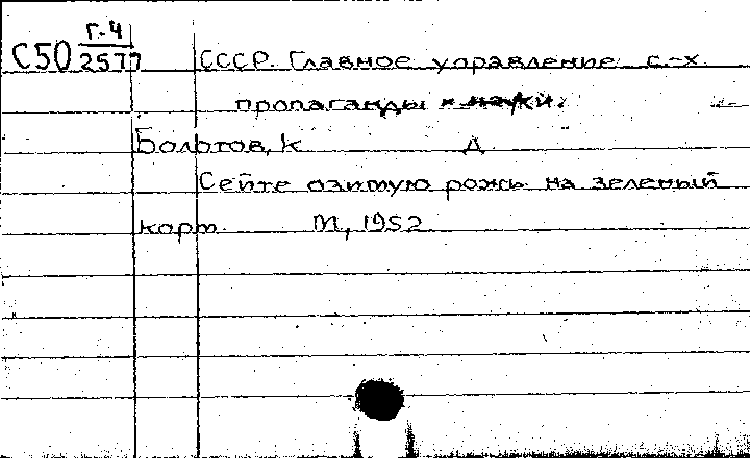 Г-4
С50 2577 СССР. Главное управление с.-х.
пропаганды и науки.
Болотов, К Д
Сейте озимую рожь на зеленый
корм. М, 1952